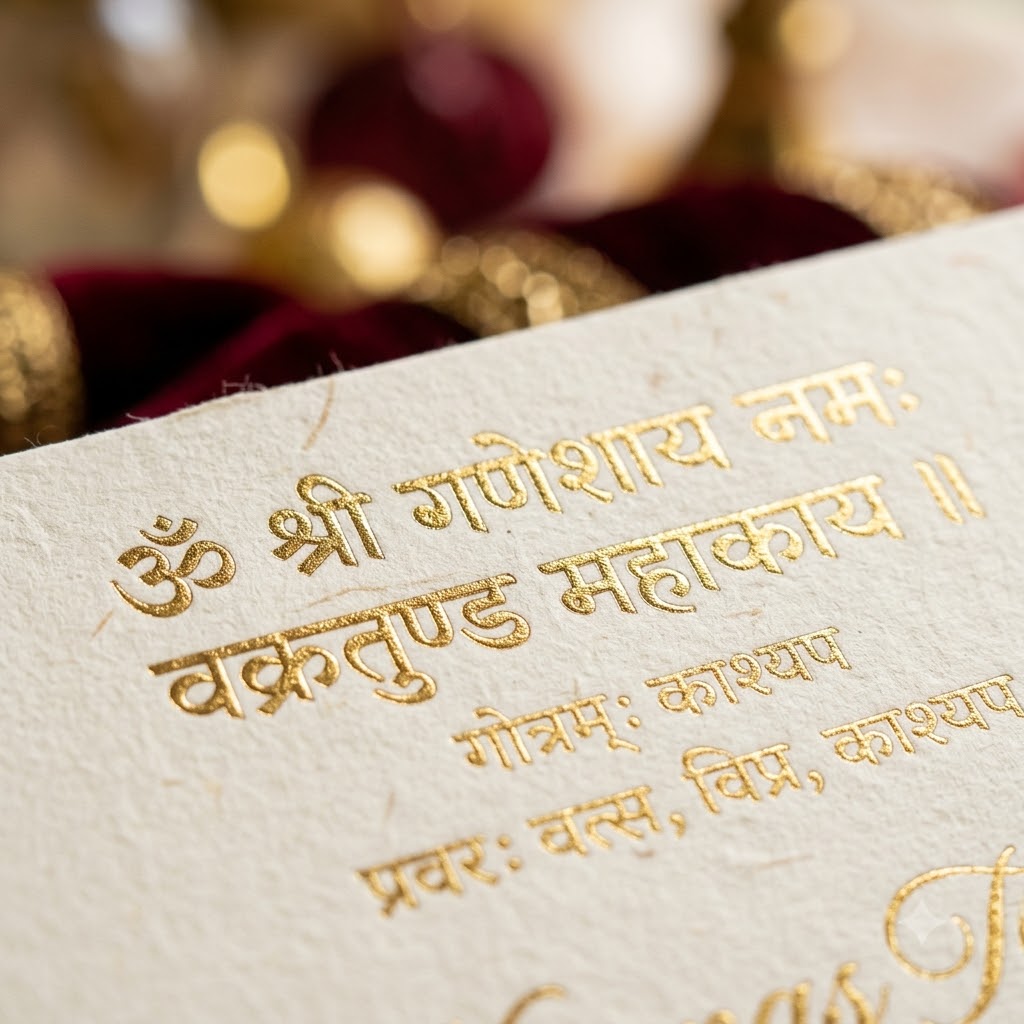 ॐ श्री गणेशाय नमः
वक्रतुण्ड महाकाय ॥
गोत्रम्: काश्यप
प्रवर: वत्स, विप्र, काश्यप